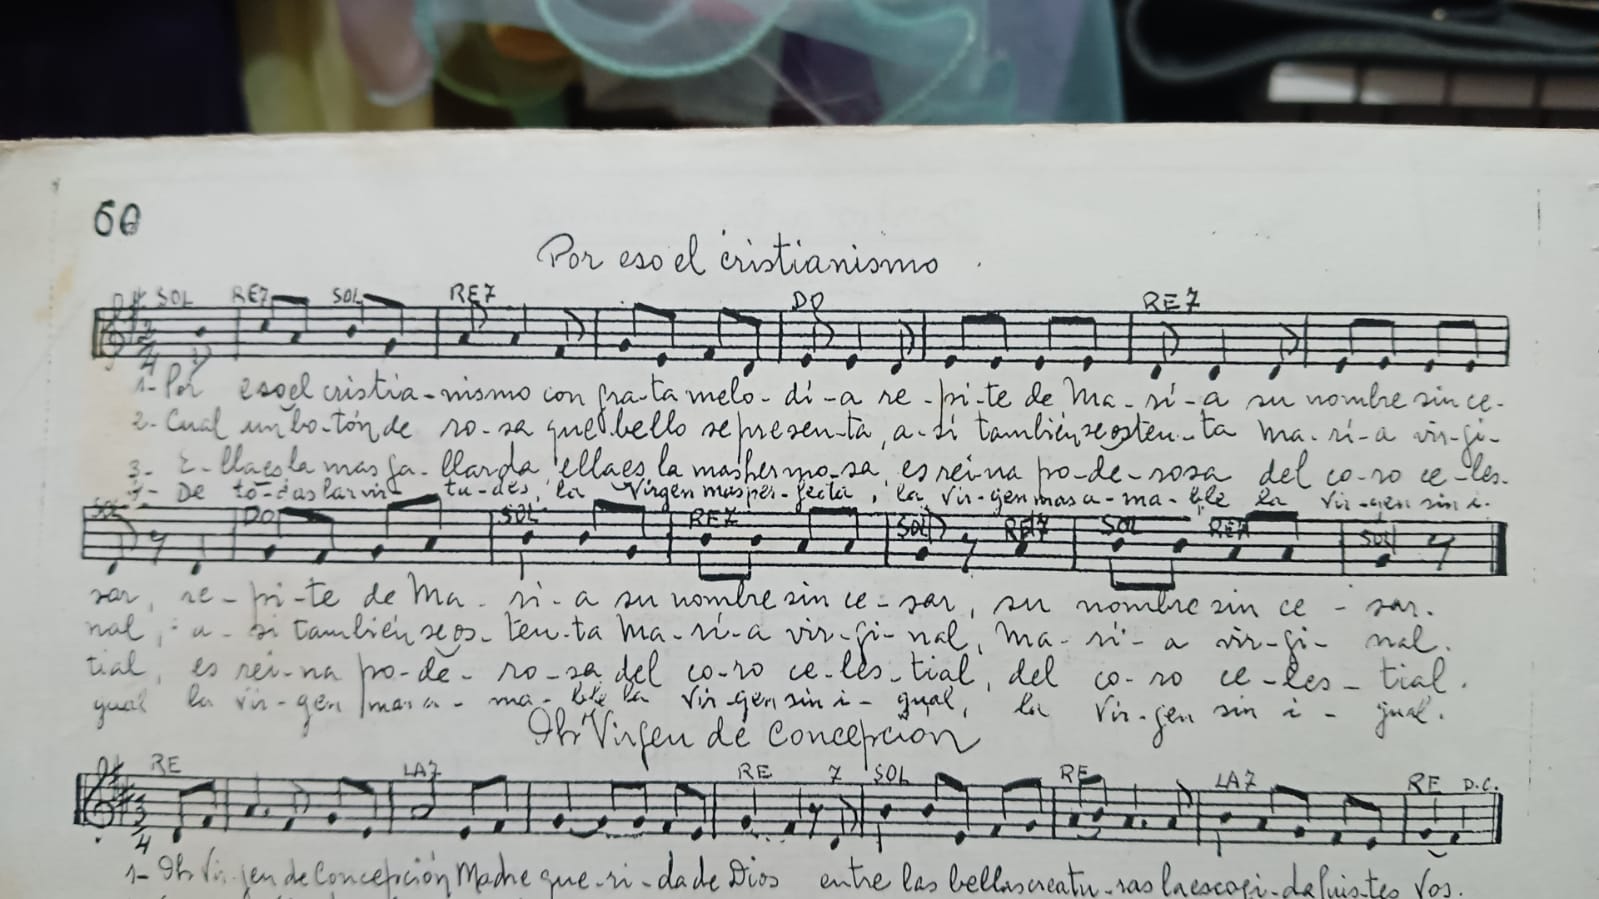 60
Por eso el cristianismo
SOL RE7 SOL RE7 DO RE7
2
4
1- Por eso el cristia-nismo con gra-ta melo-dí-a re-pi-te de Ma-rí-a su nombre sin ce-
2- Cual un bo-tón de ro-sa que bello se presen-ta, a-sí también se osten-ta Ma-rí-a vir-gi-
3- E-lla es la mas ga-llarda ella es la mas hermo-sa, es rei-na po-de-rosa del co-ro ce-les-
4- De to-das las vir-tu-des, la Virgen mas per-fecta, la vir-gen mas a-ma-ble la vir-gen sin i-
SOL DO SOL RE7 SOL RE7 SOL RE7 SOL
sar, re-pi-te de Ma-rí-a su nombre sin ce-sar, su nombre sin ce-sar.
nal, a-sí también se os-ten-ta Ma-rí-a vir-gi-nal, Ma-rí-a vir-gi-nal.
tial, es rei-na po-de-ro-sa del co-ro ce-les-tial, del co-ro ce-les-tial.
gual la vir-gen mas a-ma-ble la vir-gen sin i-gual, la vir-gen sin i-gual.
Oh Virgen de Concepción
RE LA7 RE 7 SOL RE LA7 RE D.C.
3
4
1- Oh Vir-gen de Concepción Madre que-ri-da de Dios entre las bellas creatu-ras la escogi-da fuis-tes Vos.